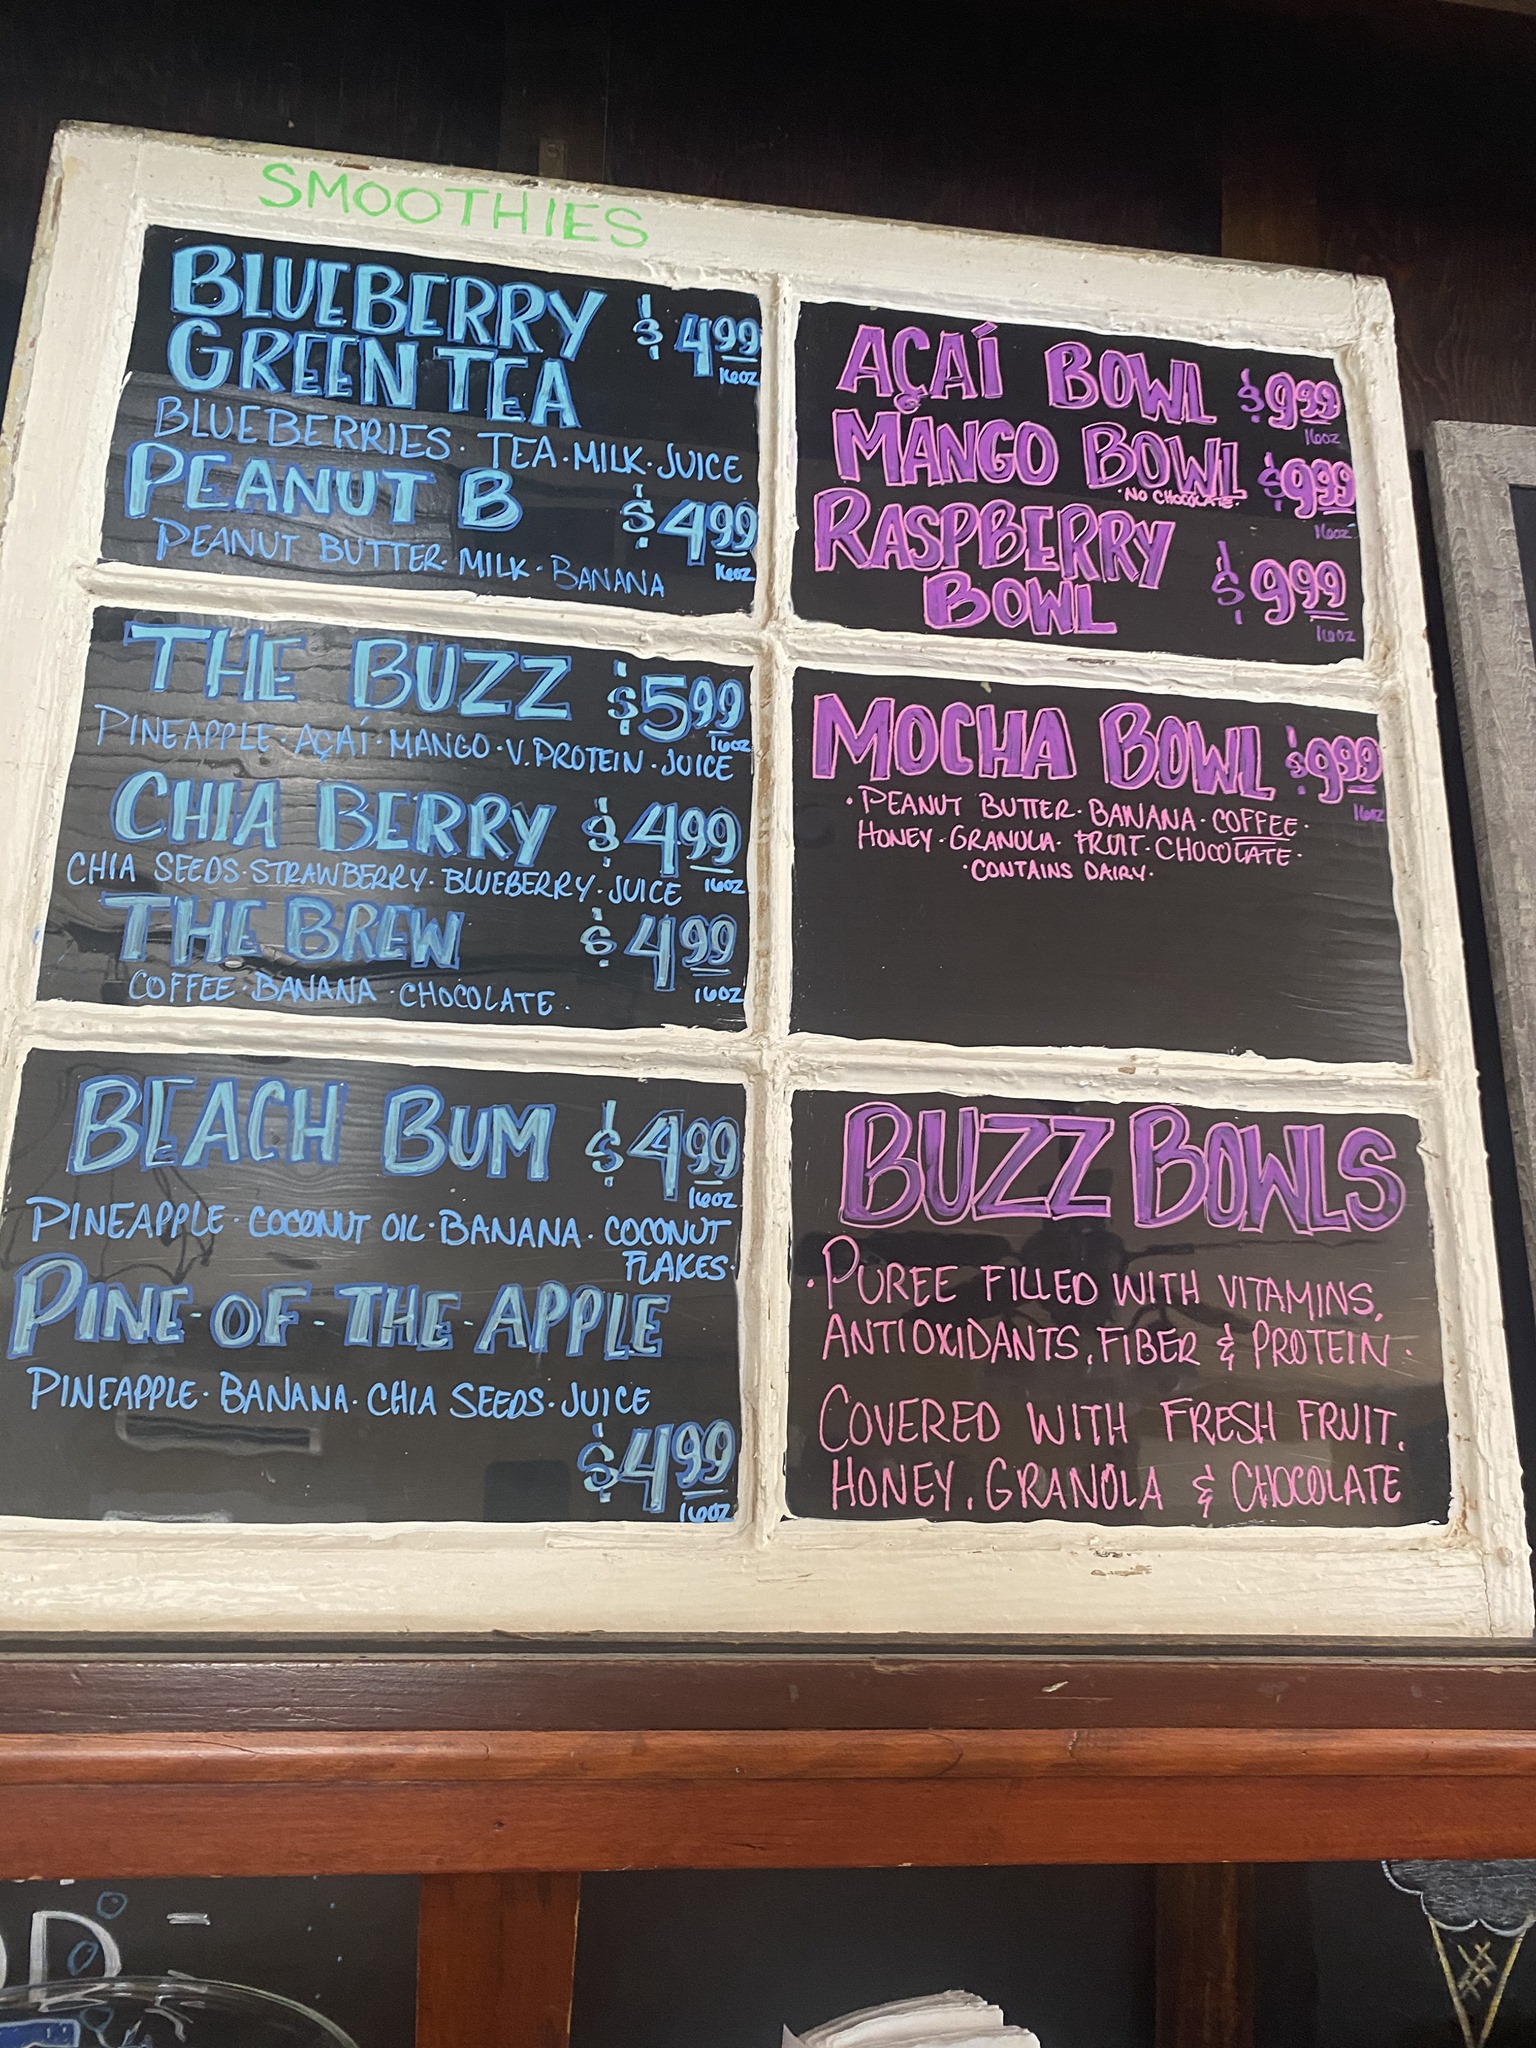 SMOOTHIES
BLUEBERRY $4.99
GREEN TEA 16OZ
BLUEBERRIES · TEA · MILK · JUICE
PEANUT B $4.99
PEANUT BUTTER · MILK · BANANA 16OZ
THE BUZZ $5.99
16OZ
PINEAPPLE · AÇAÍ · MANGO · V. PROTEIN · JUICE
CHIA BERRY $4.99
16OZ
CHIA SEEDS · STRAWBERRY · BLUEBERRY · JUICE
THE BREW $4.99
16OZ
COFFEE · BANANA · CHOCOLATE ·
BEACH BUM $4.99
16OZ
PINEAPPLE · COCONUT OIL · BANANA · COCONUT
FLAKES ·
PINE · OF · THE · APPLE
PINEAPPLE · BANANA · CHIA SEEDS · JUICE
$4.99
16OZ
AÇAÍ BOWL $9.99
16OZ
MANGO BOWL $9.99
· NO CHOCOLATE ·
16OZ
RASPBERRY
BOWL $9.99
16OZ
MOCHA BOWL $9.99
16OZ
· PEANUT BUTTER · BANANA · COFFEE ·
HONEY · GRANOLA · FRUIT · CHOCOLATE ·
· CONTAINS DAIRY ·
BUZZ BOWLS
· PUREE FILLED WITH VITAMINS,
ANTIOXIDANTS, FIBER & PROTEIN ·
COVERED WITH FRESH FRUIT,
HONEY, GRANOLA & CHOCOLATE